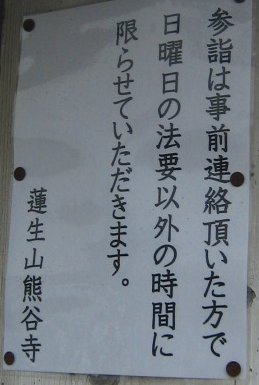 参詣は事前連絡頂いた方で
日曜日の法要以外の時間に
限らせていただきます。
蓮生山熊谷寺